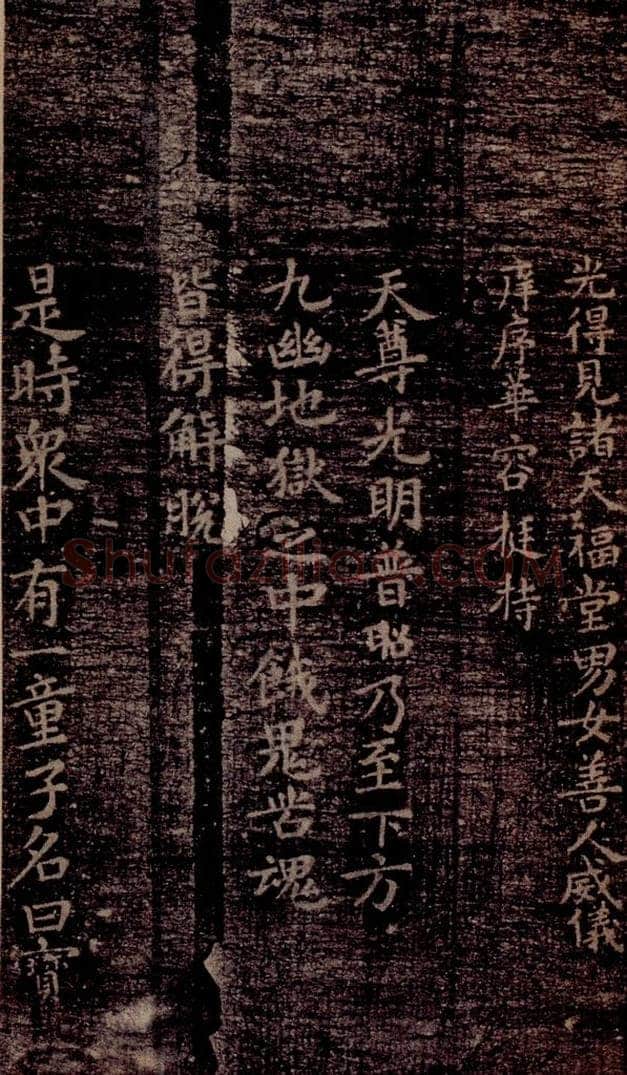 光得見諸天福堂男女善人威儀
庠序華容挺持
天尊光明普昭乃至下方
九幽地獄之中餓鬼苦魂
皆得解脫
是時眾中有一童子名曰寶
Shufaziliao.COM